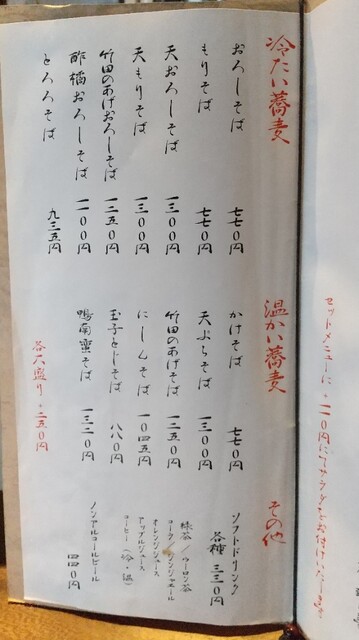 セットメニューに+一一〇円にてサラダをお付けいたします
冷たい蕎麦
おろしそば 七七〇円
もりそば 七七〇円
天おろしそば 一三〇〇円
天もりそば 一三〇〇円
竹田のあげおろしそば 一二五〇円
酢橘おろしそば 一一〇〇円
とろろそば 九三五円
温かい蕎麦
かけそば 七七〇円
天ぷらそば 一三〇〇円
竹田のあげそば 一二五〇円
にしんそば 一〇四五円
玉子とじそば 八八〇円
鴨南蛮そば 一三二〇円
各大盛り+二五〇円
その他
ソフトドリンク
各種 三三〇円
緑茶/ウーロン茶
コーラ/ジンジャエール
オレンジジュース
アップルジュース
コーヒー(冷・温)
ノンアルコールビール
四四〇円